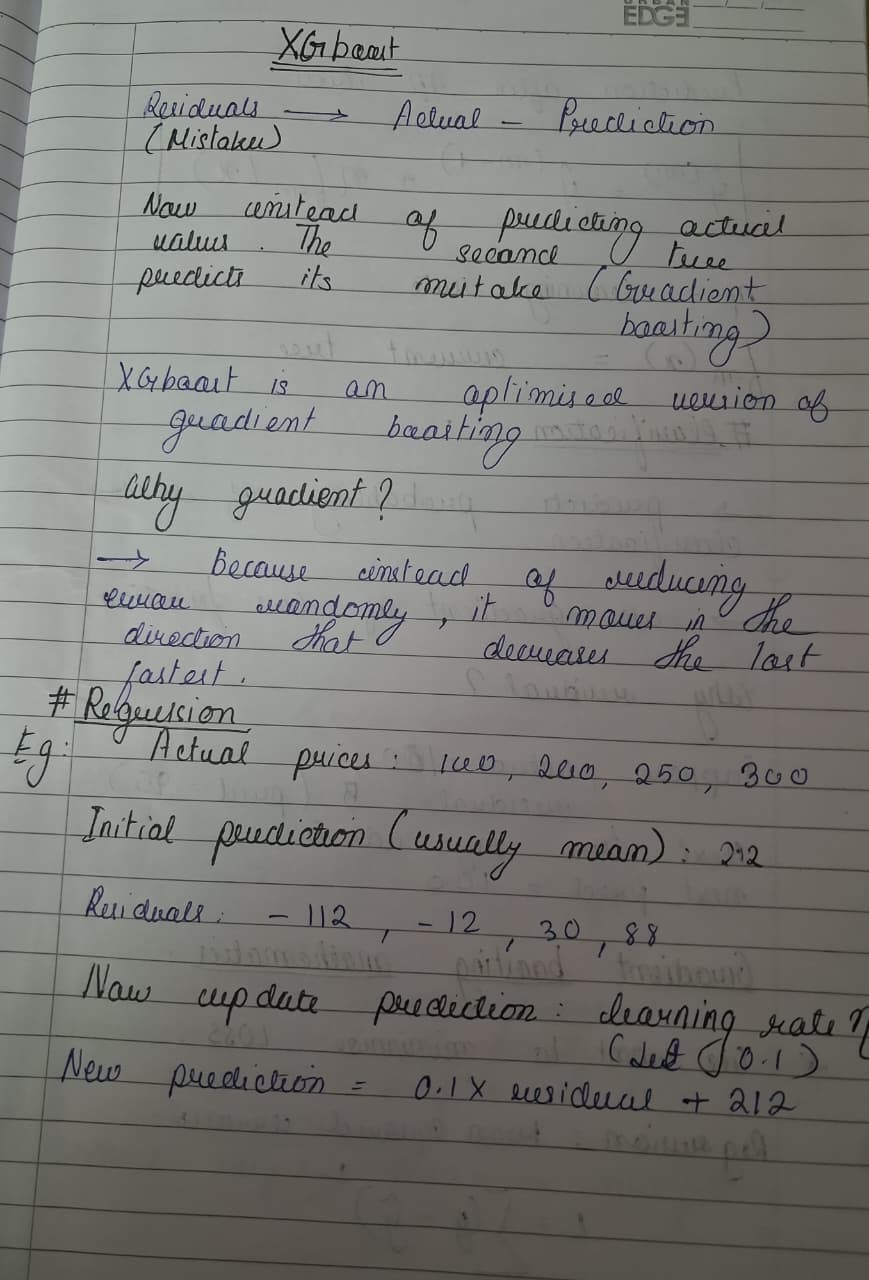 EDGE
XGboost
Residuals → Actual - Prediction
(Mistakes)
Now instead of predicting actual
values. The second tree
predicts its mistake (Gradient
boosting)
XGboost is an optimised version of
gradient boosting
Why gradient?
→ Because instead of reducing
error randomly, it moves in the
direction that decreases the loss
fastest.
# Regression
Eg: Actual prices: 100, 200, 250, 300
Initial prediction (usually mean): 212
Residuals: -112, -12, 30, 88
Now update prediction: learning rate η
(let 0.1)
New prediction = 0.1 X residual + 212